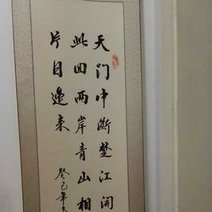 天门中断楚江开
此回两岸青山相
片日邊来
癸巳年